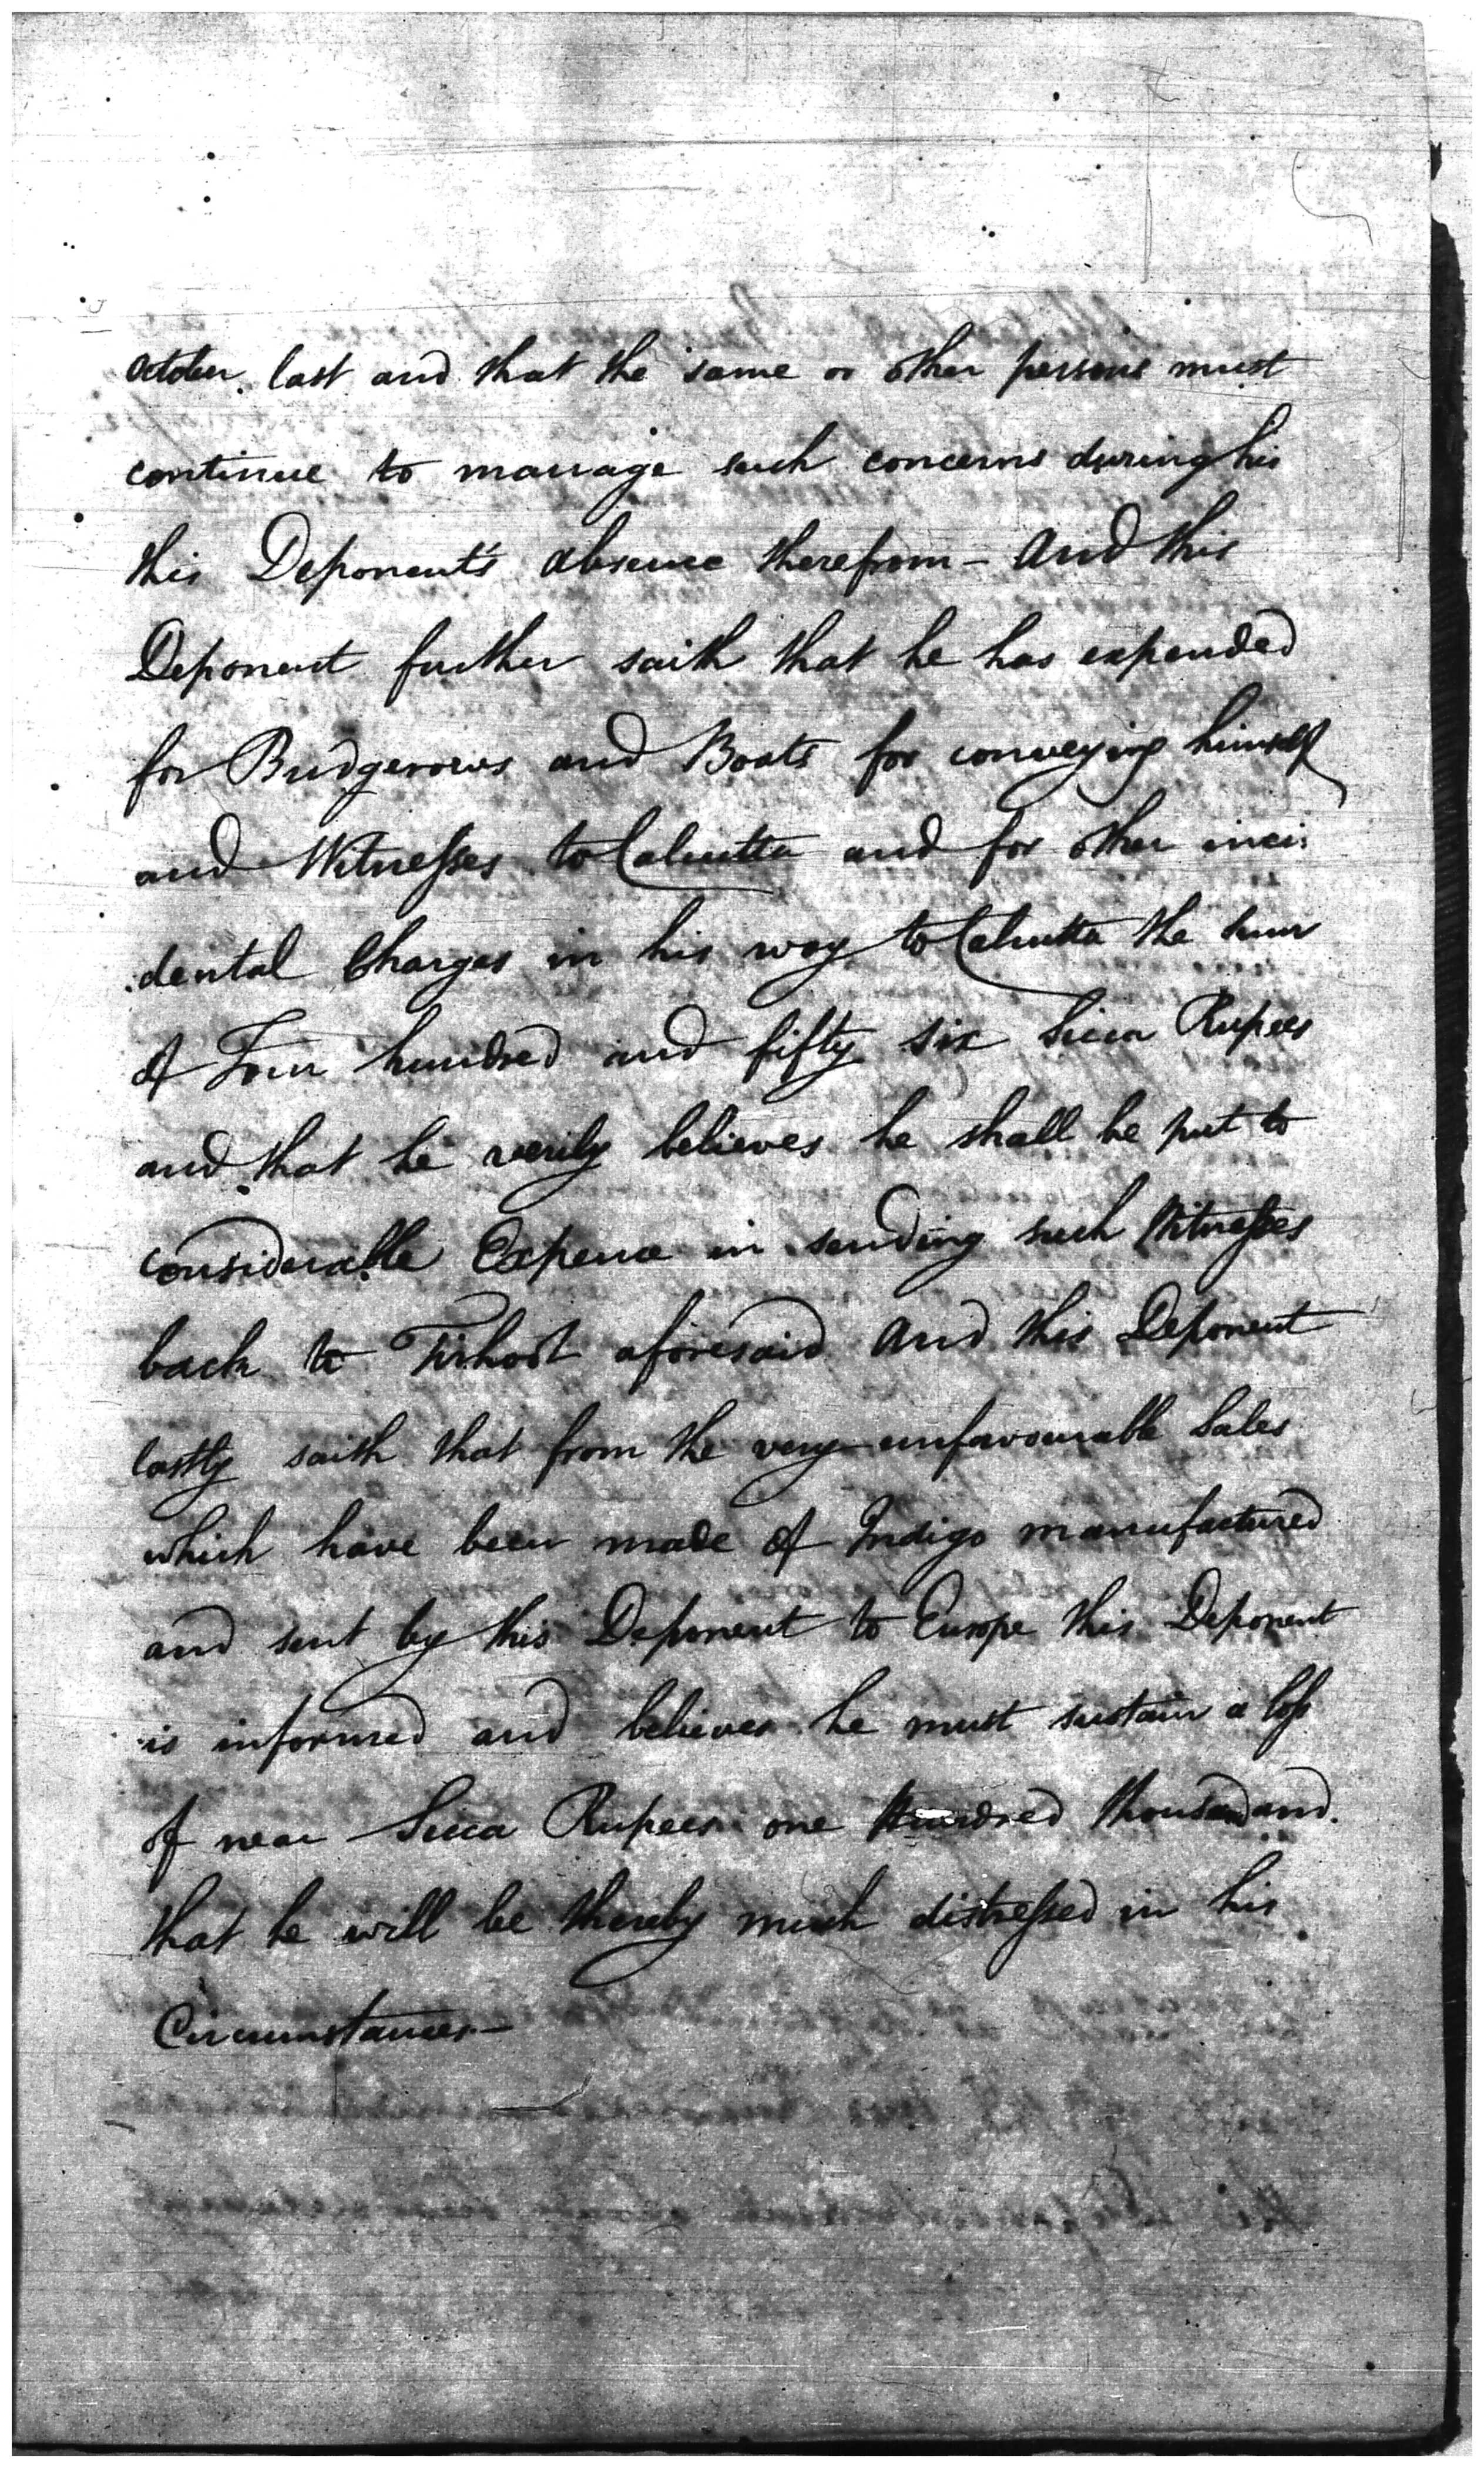 October last and that the same or other persons must
continue to manage such concerns during his
this Deponent's absence therefrom - And this
Deponent further saith that he has expended
for Budgerows and Boats for conveying himself
and Witnesses to Calcutta and for other inci:
:dental Charges in his way to Calcutta the sum
of Four hundred and fifty six Sicca Rupees
and that he verily believes he shall be put to
considerable Expence in sending such Witnesses
back to Tirhoot aforesaid And this Deponent
lastly saith that from the very unfavourable Sales
which have been made of Indigo manufactured
and sent by this Deponent to Europe this Deponent
is informed and believes he must sustain a loss
of near Sicca Rupees one Hundred thousand and
that he will be thereby much distressed in his
Circumstances -